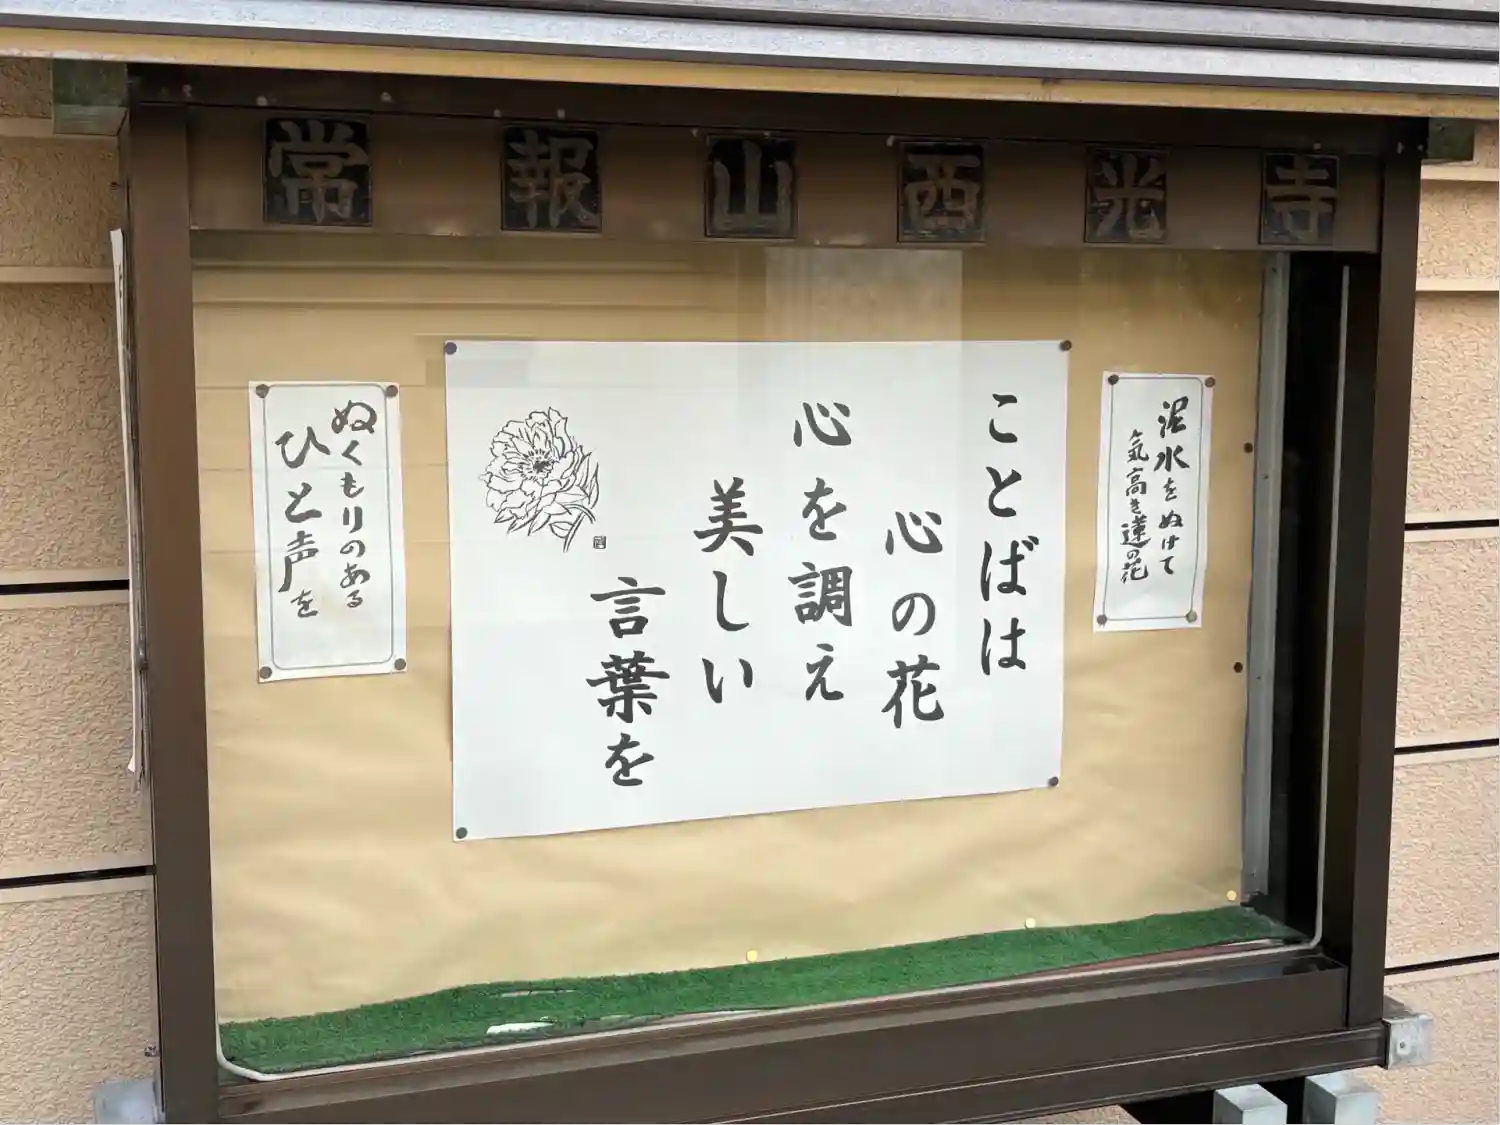 常報山西光寺
泥水をぬけて
気高き蓮の花
ことばは
心の花
心を調え
美しい
言葉を
ぬくもりのある
ひと声を